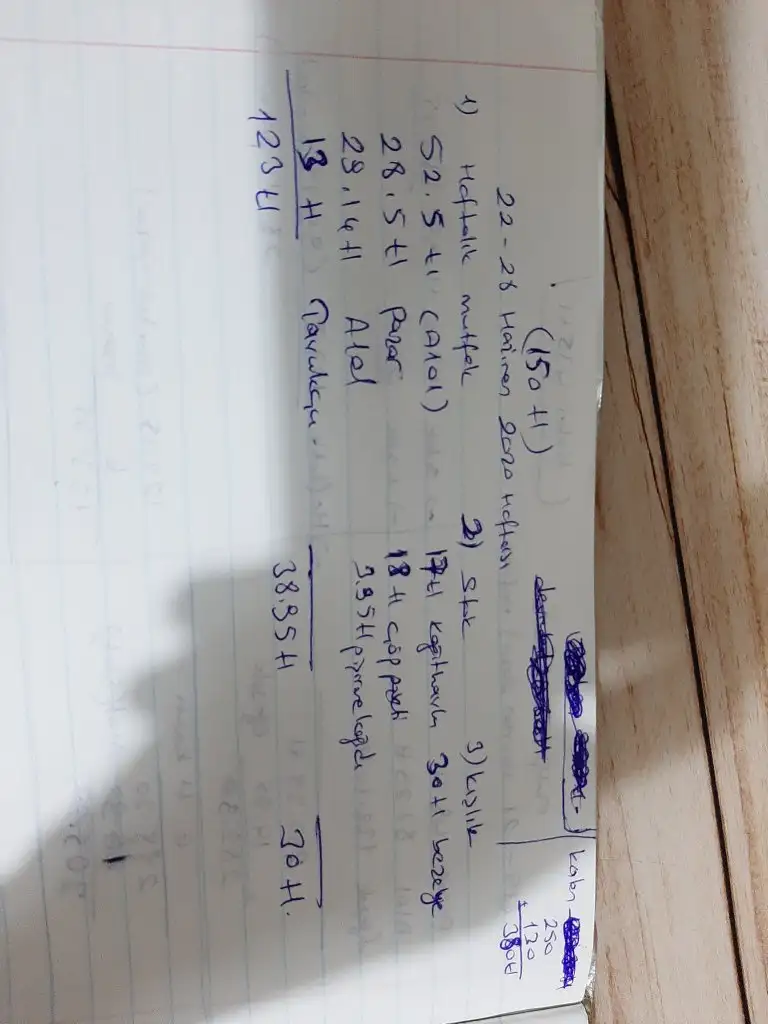 Kalan
250
+ 130
380 tl
(150 tl)
22-28 Haziran 2020 Haftası
1) Haftalık mutfak
52.5 tl (A101)
28.5 tl pazar
29.14 tl A101
13 tl Tavukçu
123 tl
2) Stok
17 tl kağıt havlu
18 tl çöp poşeti
3.95 tl pişirme kağıdı
38.95 tl
3) kışlık
30 tl bezelye
30 tl.